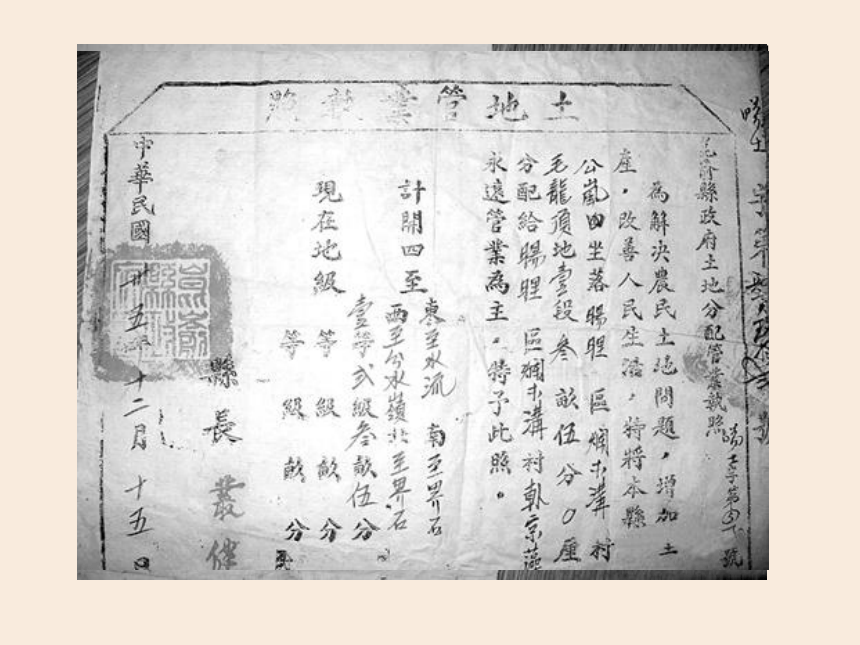 土地營業執照
昆嵛縣政府土地分配營業執照 字第 號
為解決農民土地問題，增加土
產，改善人民生活，特將本縣
公嵐田坐落暘里 區爛木溝 村
毛龍頂地壹段 叁 畝伍分 0 厘
分配給暘里 區爛木溝村 宗
永遠營業為主。特予此照。
計開四至
東至水流 南至界石
西至分水嶺北至界石
現在地級
壹等弍級叁畝伍分
等 級 畝 分
等 級 畝 分
縣長 叢
中華民國卅五年十二月十五日